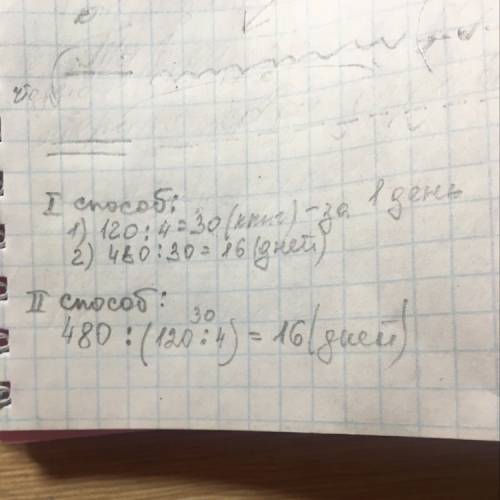 I способ:
1) 120 : 4 = 30 (книг) - за 1 день
2) 480 : 30 = 16 (дней)
II способ:
30
480 : (120 : 4) = 16 (дней)